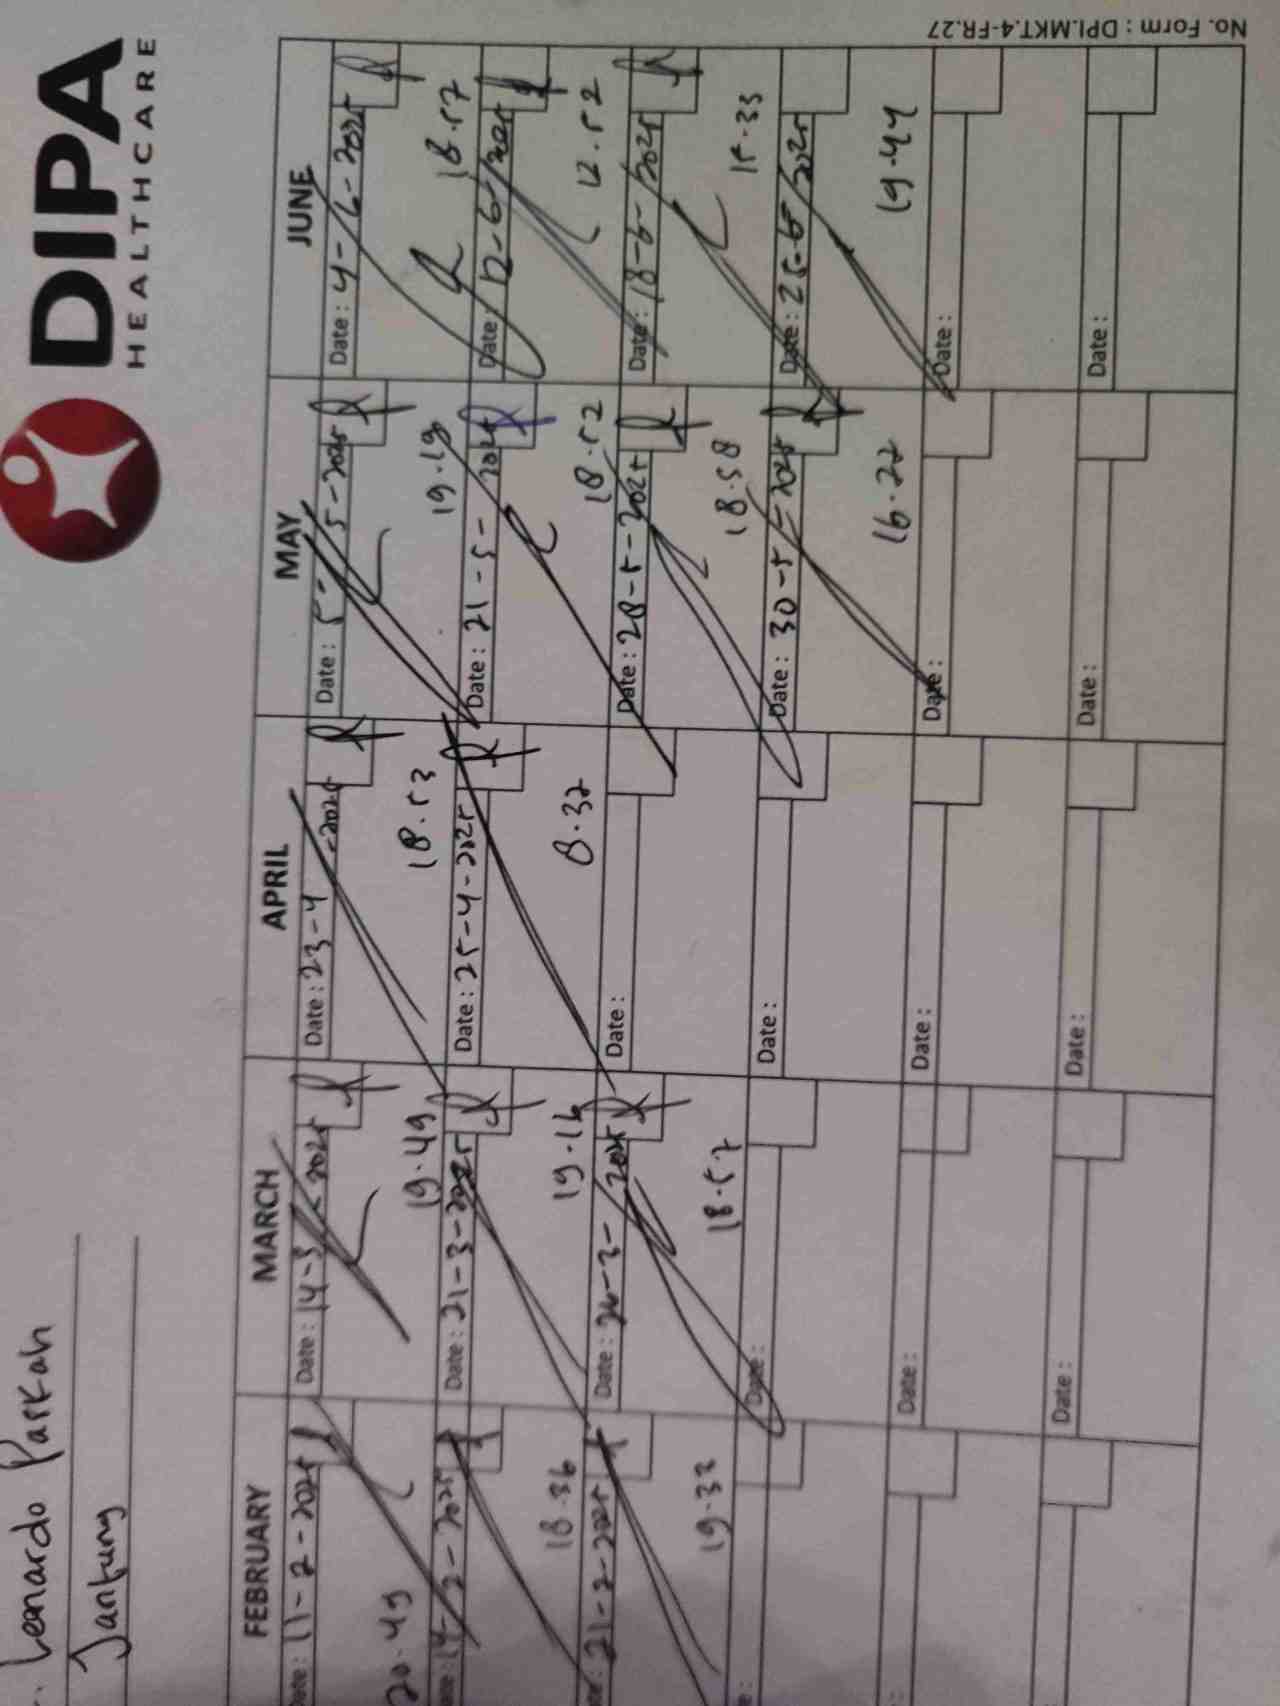 DIPA
HEALTHCARE
. Leonardo Parkah
Jantung
FEBRUARY MARCH APRIL MAY JUNE
Date: 11-2-2025 Date: 14-3-2025 Date: 23-4-2025 Date: 5-5-2025 Date: 4-6-2025
20.49 19.49 18.53 19.19 18.57
Date: 14-2-2025 Date: 21-3-2025 Date: 25-4-2025 Date: 21-5-2025 Date: 12-6-2025
18.36 19.16 8.32 18.52 12.52
Date: 21-2-2025 Date: 26-3-2025 Date: Date: 28-5-2025 Date: 18-6-2025
19.32 18.57 18.58 15.33
Date: Date: Date: Date: 30-5-2025 Date: 25-6-2025
16.22 19.44
Date: Date: Date: Date:
Date: Date: Date: Date:
No. Form : DPI.MKT.4-FR.27